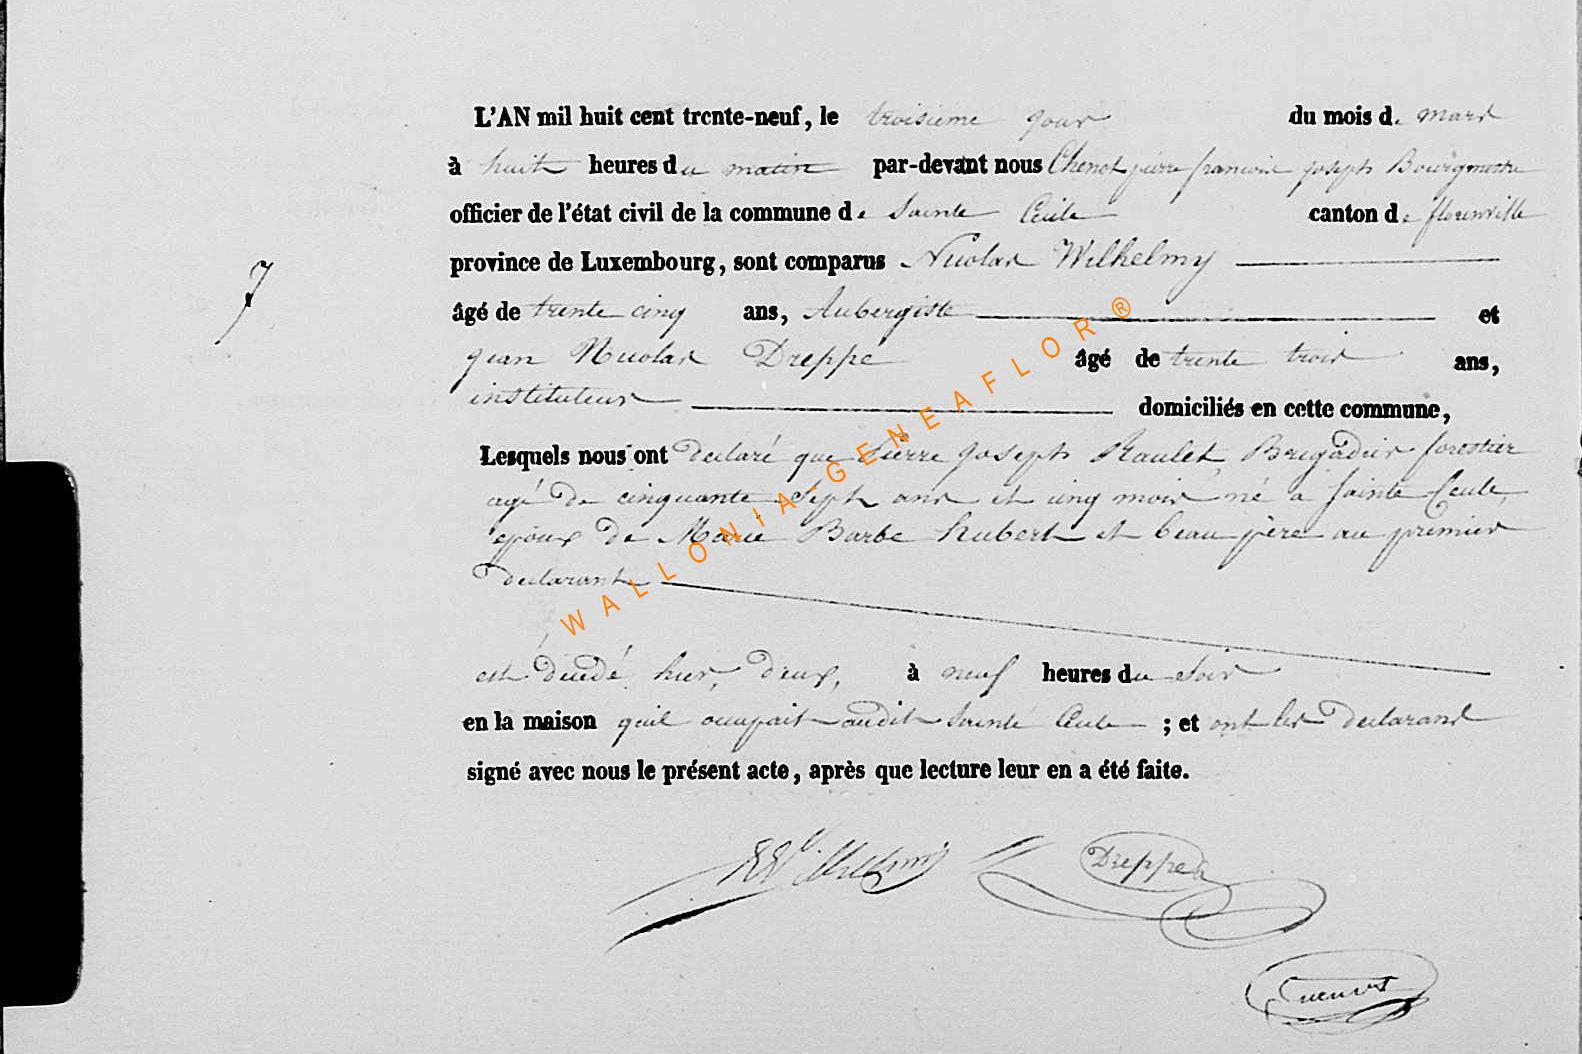 L'AN mil huit cent trente-neuf, le troisieme jour du mois de mars
à huit heures du matin par-devant nous Chenot pierre francois joseph Bourgmestre
officier de l'état civil de la commune de Sainte Cecile canton de florenville
province de Luxembourg, sont comparus Nicolas Wilhelmy
7
âgé de trente cinq ans, Aubergiste et
jean Nicolas Dreppe âgé de trente trois ans,
instituteur domiciliés en cette commune,
Lesquels nous ont declaré que Pierre joseph Raulet, Brigadier forestier
agé de cinquante Sept ans et cinq mois né a Sainte Cecile,
epoux de Marie Barbe hubert et beau père au premier
declarant
est décédé hier, deux, à neuf heures du Soir
en la maison quil occupait audit Sainte Cecile ; et ont les declarans
signé avec nous le présent acte, après que lecture leur en a été faite.
Dreppe
WALLONIA-GENEAFLOR®